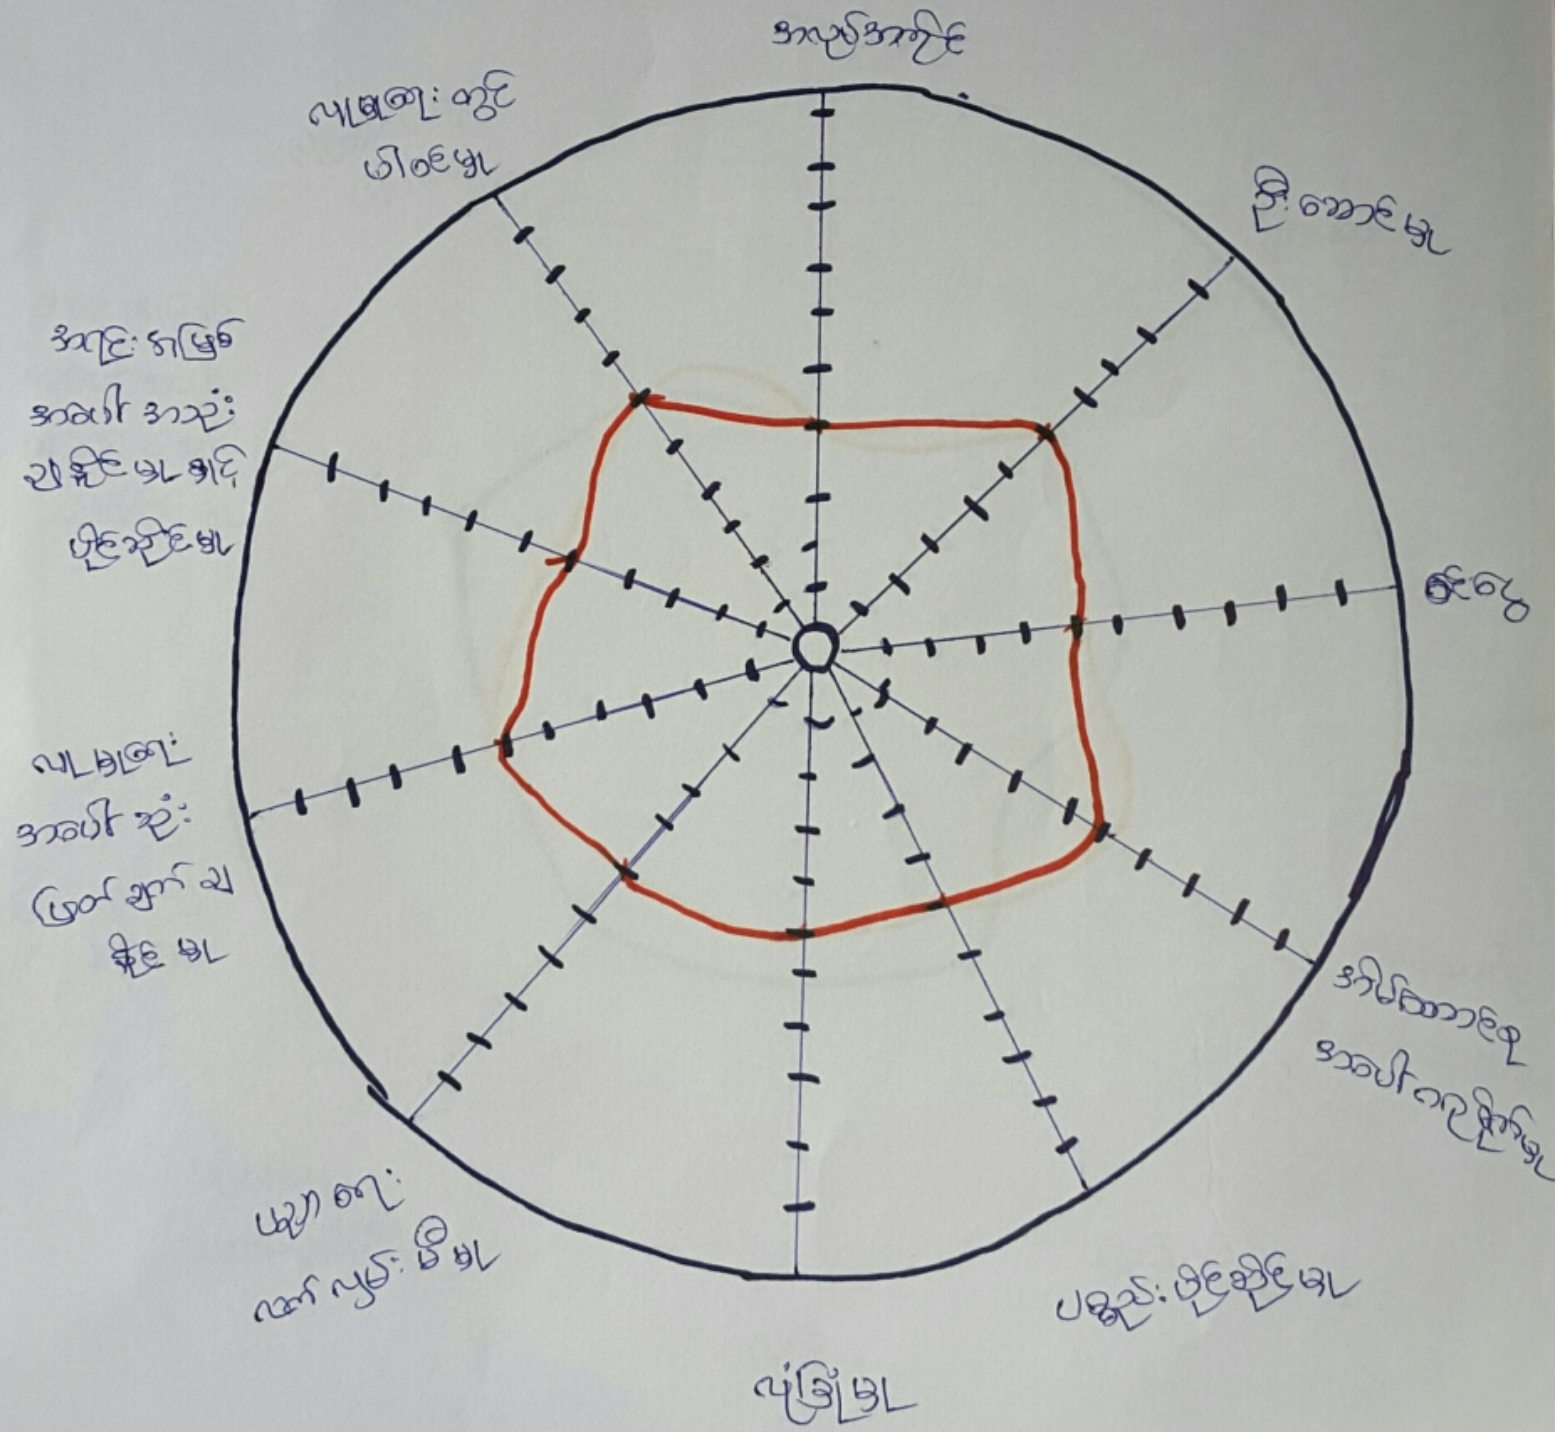 အလုပ်အကိုင်
ဦးဆောင်မှု
ငွေ
အိမ်ထောင်စု
အပေါ် ဂရုစိုက်မှု
ပစ္စည်းပိုင်ဆိုင်မှု
လုံခြုံမှု
ပညာရေး
လက်လှမ်းမီမှု
လူမှုရေး
အပေါ် ဆုံး
ဖြတ်ချက် ချ
နိုင်မှု
အရင်းအမြစ်
အပေါ် အသုံး
ချနိုင်မှု နှင့်
ပိုင်ဆိုင်မှု
လူမှုရေး တွင်
ပါဝင်မှု